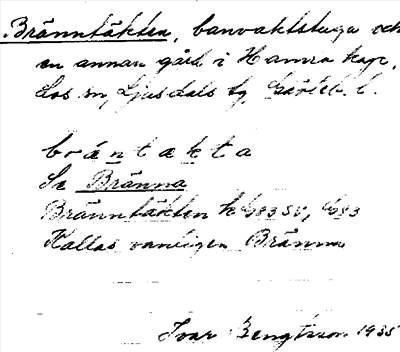 Bränntäkten, banvaktstuga och
en annan gård i Hamra kap,
Los sn, Ljusdals tg, Gävleb. l.
bränntäkta
Se Bränna
Bränntäkten k
Kallas vanligen Bränna
Ivar Bengtsson 1935